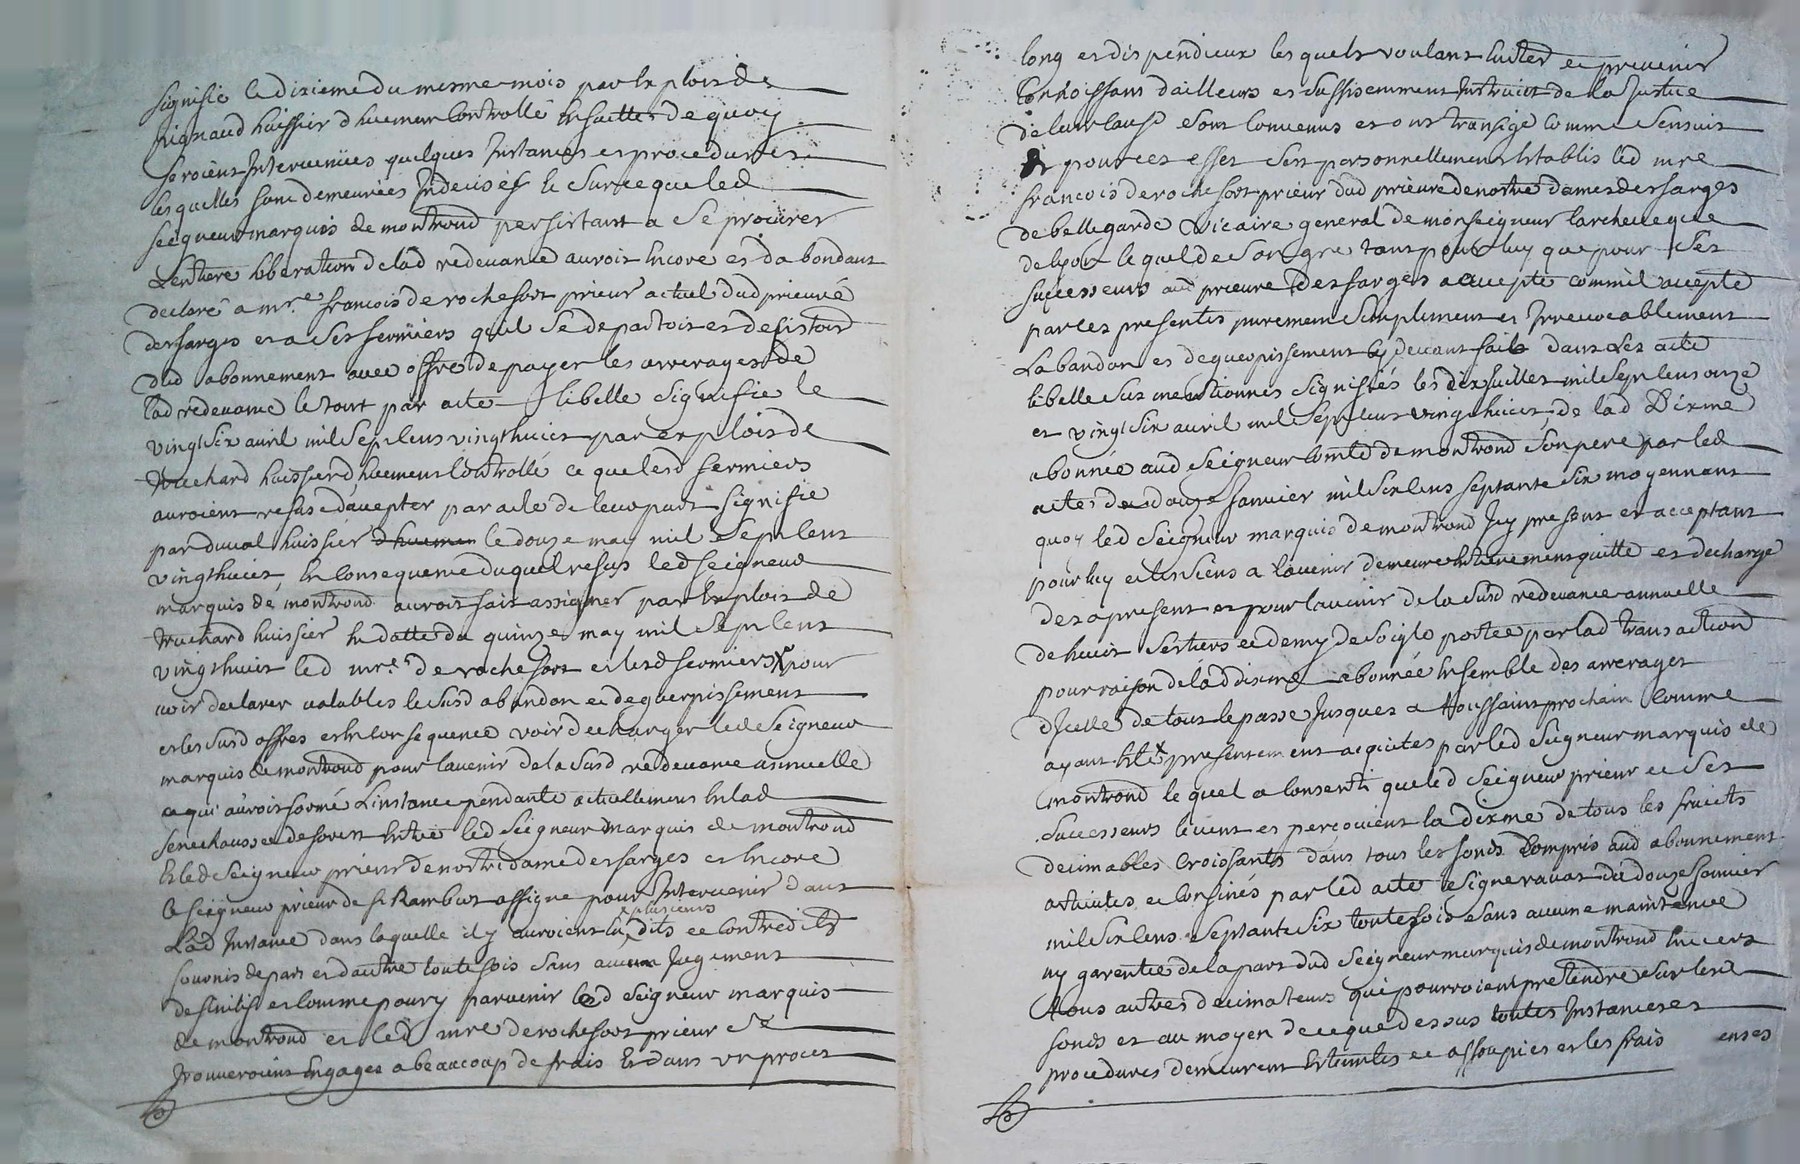 signifié le dixieme du mesme mois par Exploit de
Rignaud huissier d huemen Controllé Ensuitte de quoy
seroient Intervenües quelques Instances et procedures
lesquelles sont demeurées Indecises Et Surceque led
seigneur marquis de montrond persistant a Se procurer
Lentiere liberation de lad redevance auroit Encore et dabondant
declaré a mre francois de rochefort prieur actuel dud prieuré
desfarges et a Ses fermiers quil Se departoit et desistoit
dud abonnement avec offre de payer les arrerages de
lad redevance le tout par acte libellé signifié le
vingt six avril mil Sept Cens vingthuict par exploit de
truchard huissier d huemen Controllé ce que lesd fermiers
auroient refusé d'accepter par acte de leur part signifié
par duval huissier le douze may mil Sept Cent
vingthuict, En Consequence duquel refus led seigneur
marquis de montrond auroit fait assigner par Exploit de
truchard huissier En datte du quinze may mil Sept Cent
vingthuit led mre de rochefort et lesd fermiers pour
voir declarer valables le Susd abandon et deguerpissement
et les Susd offres et En Consequence voir decharger led Seigneur
marquis de montrond pour lavenir de la Susd redevance annuelle
ce qui auroit formé Linstance pendante actuellement En lad
senechaussée de forest Entre led Seigneur marquis de montrond
Et led Seigneur prieur de nortre dame des farges et Encore
le Seigneur prieur de St Rambert assigné pour Intervenir dans
Lad Instance dans laquelle il y auroient Eu plusieurs dits et Contredits
fournis de part et d autre toutefois Sans aucun Jugement
definitif et Comme pour y parvenir led Seigneur marquis
de montrond et led mre de rochefort prieur Se
trouveroient Engagés a beaucoup de frais Et dans un procet
long et dispendieux lesquels voulant Eviter et prevenir
Connoissant d'ailleurs et Suffisemment Instruict de la Justice
de leur Cause Sont Convenus et ont transigé Comme Sensuit
pour cet effet Sest personnellement Establis led mre
francois de rochefort prieur dud prieuré de nortre dame des farges
de bellegarde Vicaire general de monseigneur larcheveque
de lyon lequel de Son gré tant pour luy que pour Ses
Successeurs aud prieuré Des farges a accepté comm'il accepte
par ces presentes purement Simplement et Irrevocablement
Labandon et deguerpissement Cy devant fait dans Les acte
libelle Sus mentionnés Signifiés les dix Juillet mil Sept Cens onze
et vingt Six avril mil Sept Cent vingt huict de lad Dixme
abonnée aud Seigneur Comte de montrond Son pere par led
acte de douze Janvier mil Six Cens Septante Six moyennant
quoy led Seigneur marquis de montrond Icy present et acceptant
pour luy et les siens a lavenir demeure Entierement quitte et dechargé
dez a present et pour lavenir de la Susd redevance annuelle
de huict Sestiers et demy de Seigle portée par lad transaction
pour raison de lad dixme abonnée Ensemble des arrerages
d'Icelle de tout le passé Jusques a Toussaint prochain Comme
ayant Eté presentement acquites par led Seigneur marquis de
montrond le quel a Consenti que led Seigneur prieur et Ses
Successeurs levent et percoivent la dixme de tous les fruicts
decimables Croissants dans tous les fonds Compris aud abonnement
et Confinés par led acte Signé ravat du douze Janvier
mil Six Cens Septante Six toutefois Sans aucune maintenue
ny garentie de la part dud Seigneur marquis de montrond Envers
Tous autres decimateurs qui pourroient pretendre Sur lesd
fonds et au moyen de ceque dessus toutes Instances et
procedures demeurent Esteintes et assoupies et les frais enses